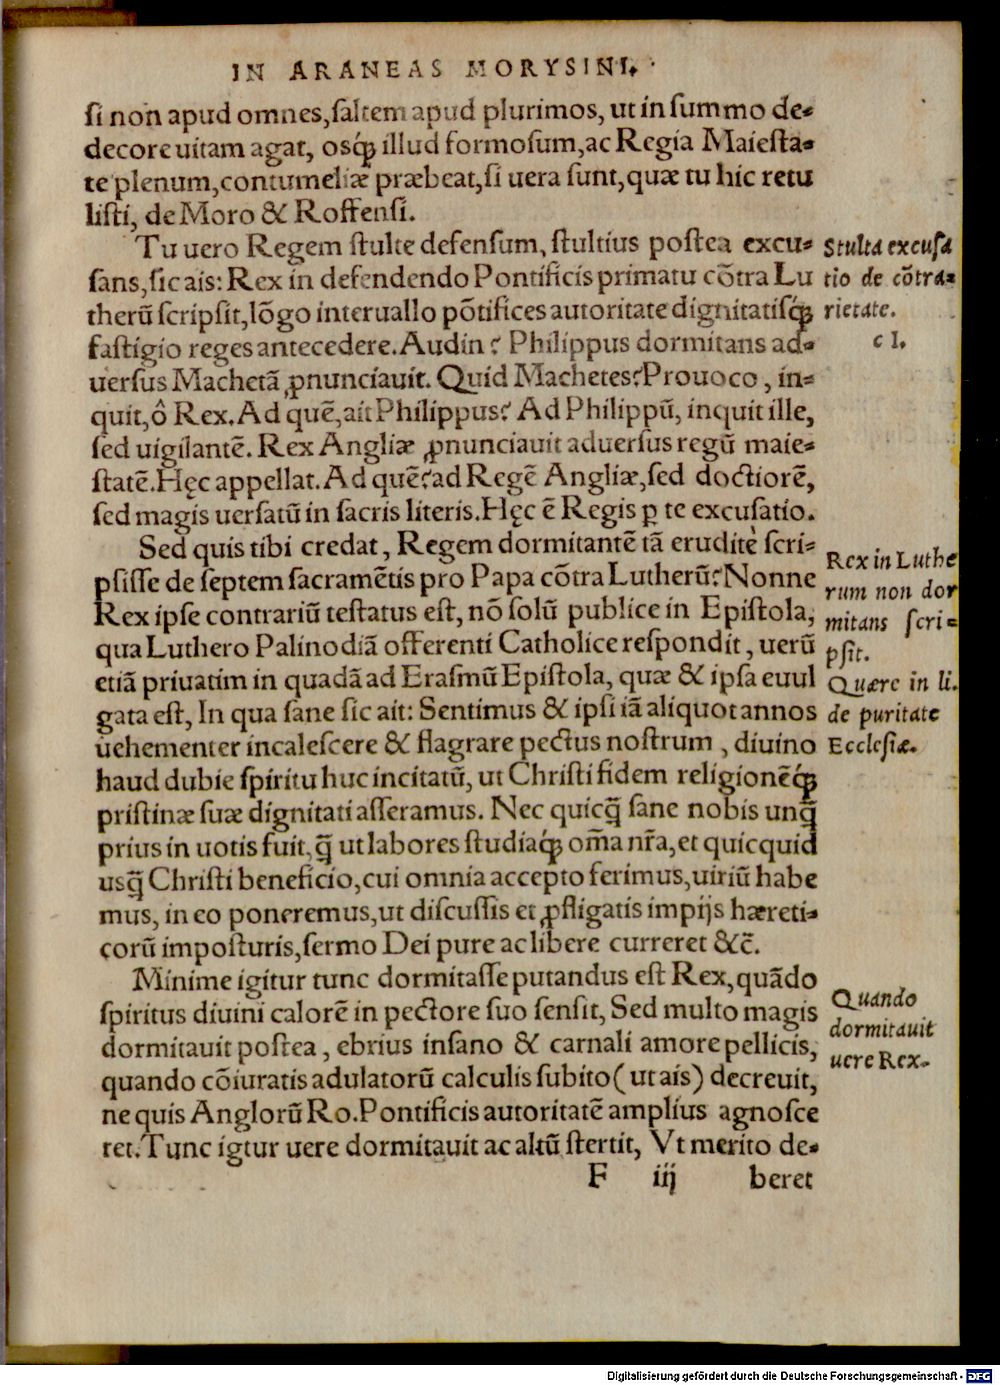 IN ARANEAS MORYSINI.
si non apud omnes, saltem apud plurimos, ut in summo de-
decore uitam agat, osq́ꝫ illud formosum, ac Regia Maiesta-
te plenum, contumeliæ præbeat, si uera sunt, quæ tu hic retu
listi, de Moro & Roffensi.
Tu uero Regem stulte defensum, stultius postea excu-
sans, sic ais: Rex in defendendo Pontificis primatu cōtra Lu
therū scripsit, lōgo interuallo pōtifices autoritate dignitatisq́ꝫ
fastigio reges antecedere. Audin? Philippus dormitans ad-
uersus Machetā ꝓnunciauit. Quid Machetes? Prouoco, in-
quit, ô Rex. Ad quē, ait Philippus? Ad Philippū, inquit ille,
sed uigilantē. Rex Angliæ ꝓnunciauit aduersus regū maie-
statē. Hęc appellat. Ad quē? ad Regē Angliæ, sed doctiorē,
sed magis uersatū in sacris literis. Hęc ē Regis ꝑ te excusatio.
Stulta excusa
tio de cōtra-
rietate.
c I.
Sed quis tibi credat, Regem dormitantē tā eruditè scri-
psisse de septem sacramētis pro Papa cōtra Lutherū? Nonne
Rex ipse contrariū testatus est, nō solū publice in Epistola,
qua Luthero Palinodiā offerenti Catholice respondit, uerū
etiā priuatim in quadā ad Erasmū Epistola, quæ & ipsa euul
gata est, In qua sane sic ait: Sentimus & ipsi iā aliquot annos
uehementer incalescere & flagrare pectus nostrum, diuino
haud dubie spiritu huc incitatū, ut Christi fidem religionēq́ꝫ
pristinæ suæ dignitati asseramus. Nec quicq̄ sane nobis unq̄
prius in uotis fuit, q̄ ut labores studiaq́ꝫ om̄a nr̄a, et quicquid
usq̄ Christi beneficio, cui omnia accepto ferimus, uiriū habe
mus, in eo poneremus, ut discussis et ꝓfligatis impijs hæreti-
corū imposturis, sermo Dei pure ac libere curreret &c̄.
Rex in Luthe
rum non dor
mitans scri-
psit.
Quære in li.
de puritate
Ecclesiæ.
Minime igitur tunc dormitasse putandus est Rex, quādo
spiritus diuini calorē in pectore suo sensit, Sed multo magis
dormitauit postea, ebrius insano & carnali amore pellicis,
quando cōiuratis adulatorū calculis subito (ut ais) decreuit,
ne quis Anglorū Ro. Pontificis autoritatē amplius agnosce
ret. Tunc igtur uere dormitauit ac altū stertit, Vt merito de-
Quando
dormitauit
uere Rex.
F iij beret
Digitalisierung gefördert durch die Deutsche Forschungsgemeinschaft - DFG